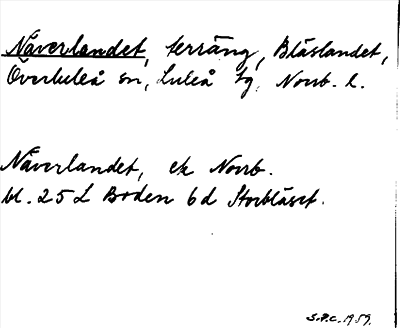 Näverlandet, terräng, Blåslandet,
Överluleå sn, Luleå tg, Norrb. l.
Näverlandet, ek Norrb.
bl. 25 L Boden 6d Storblåset.
S.P.C. 1959.